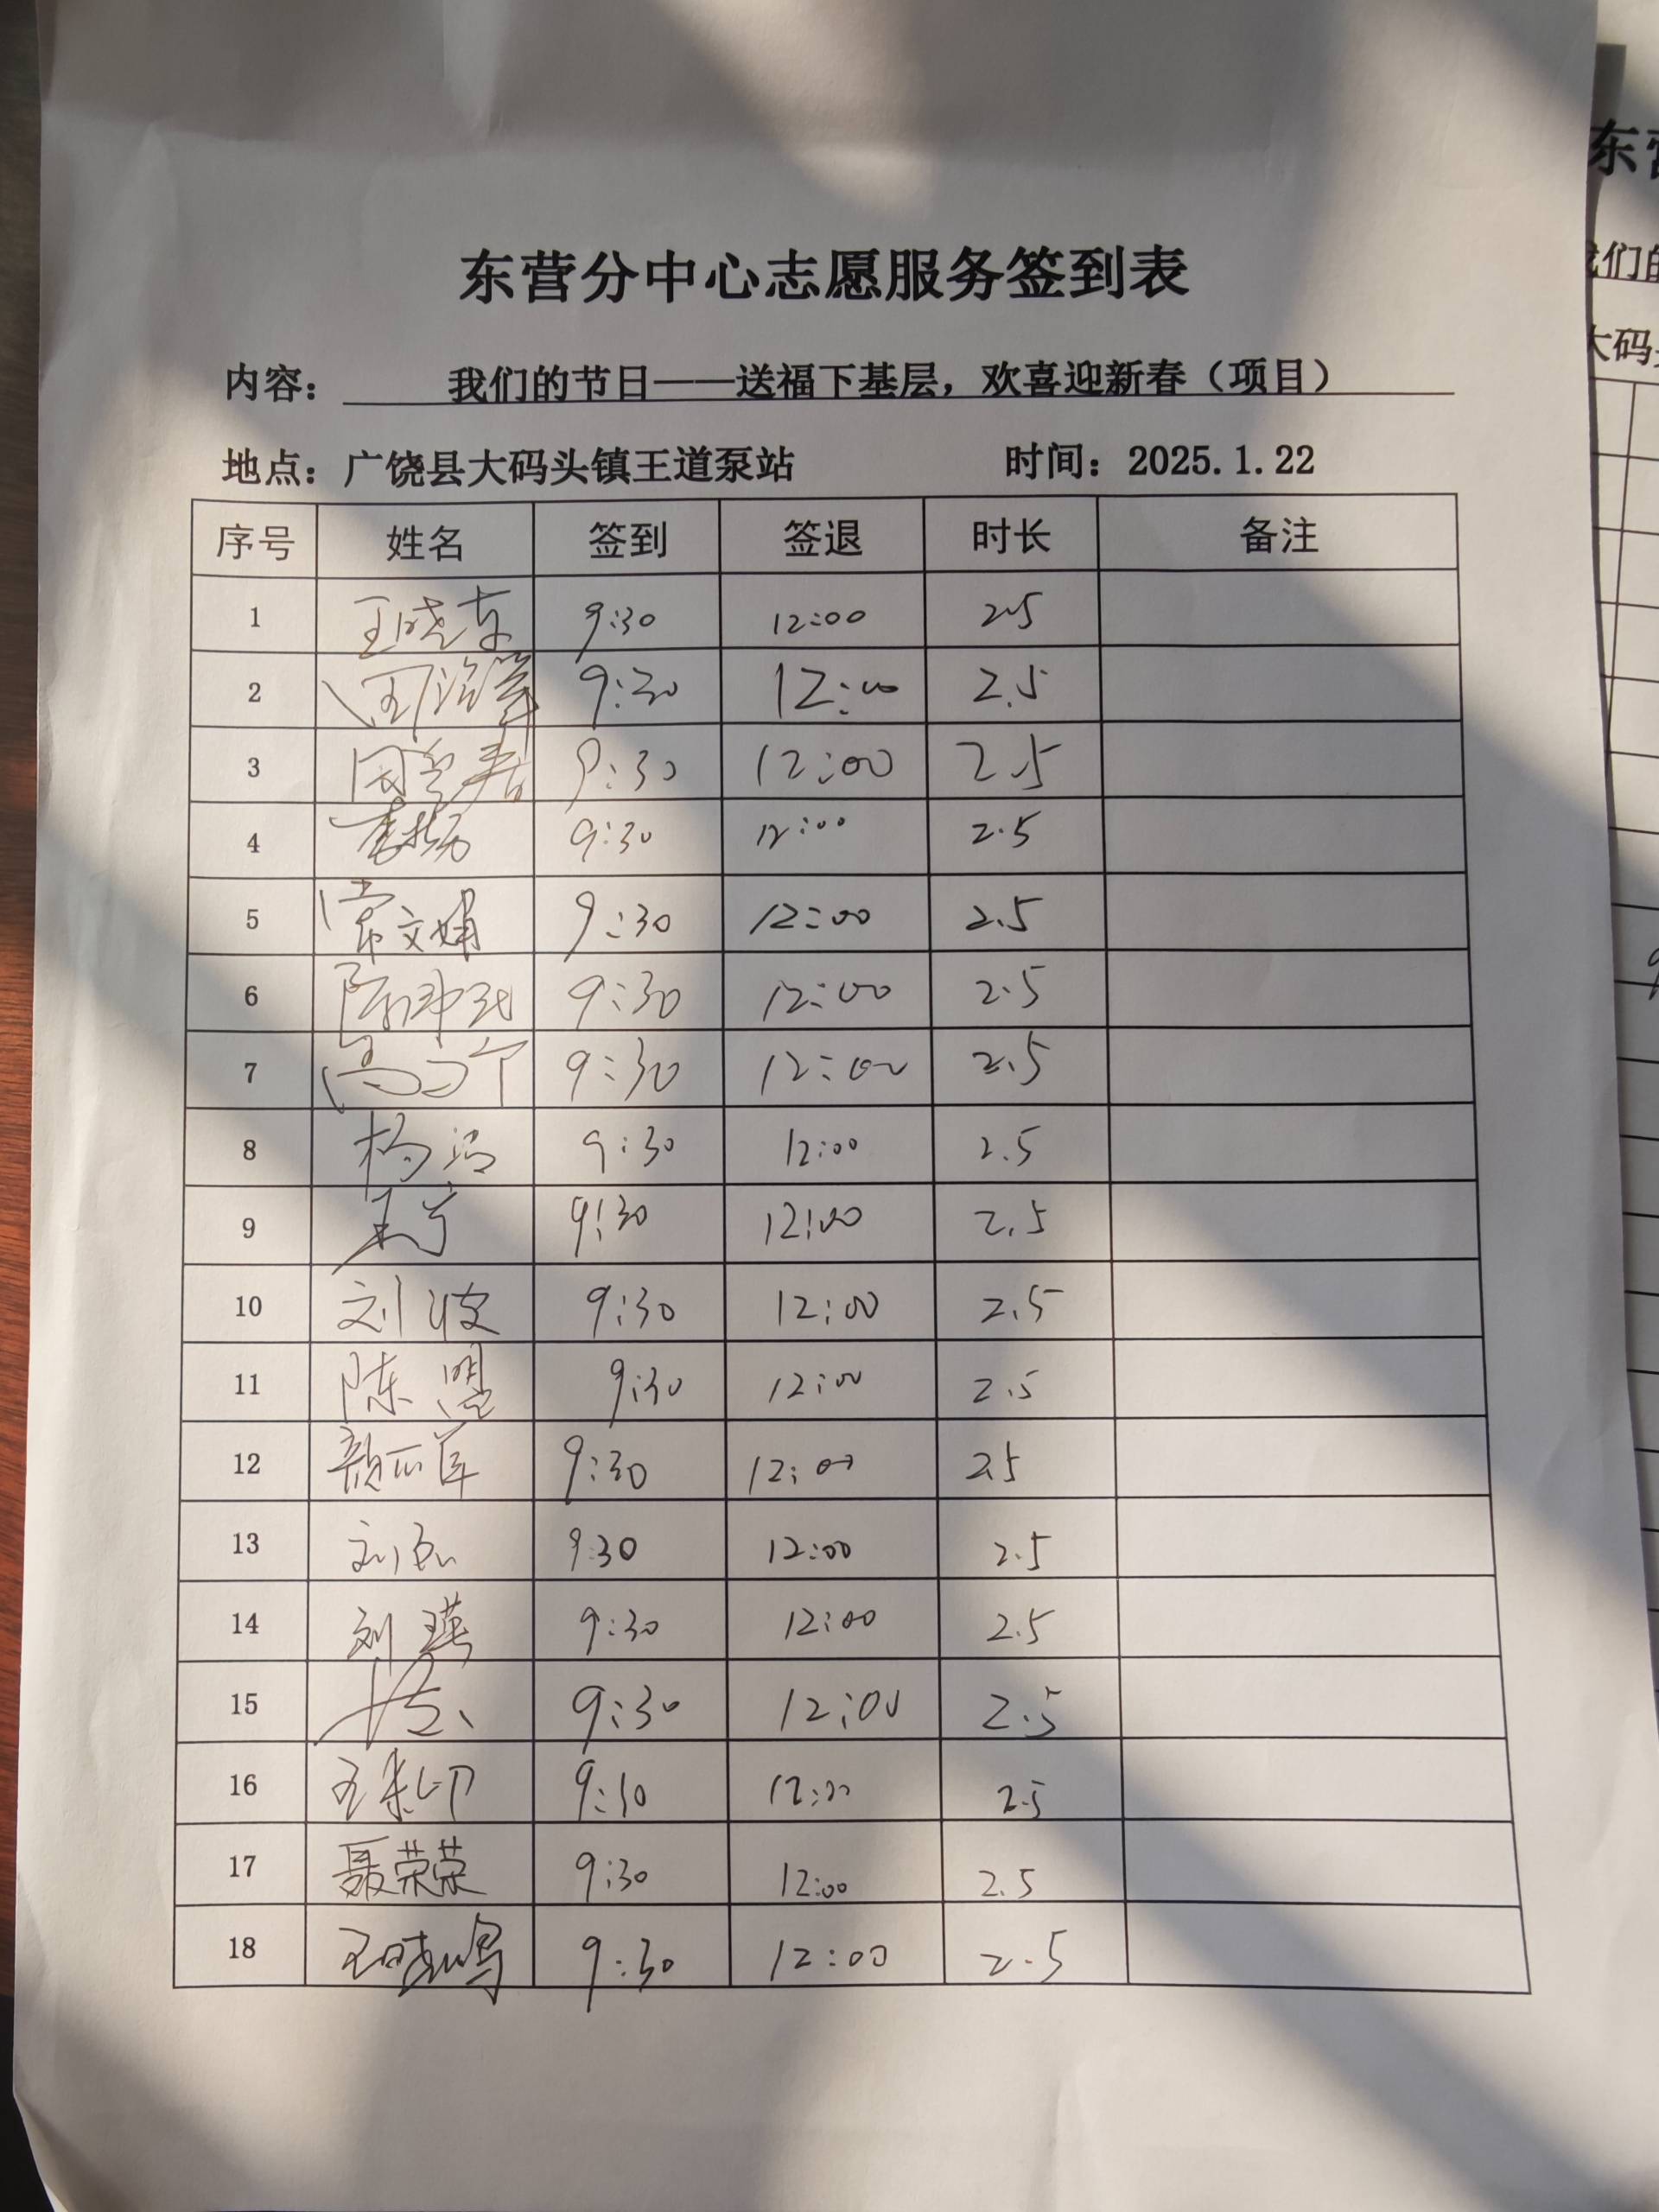 东营分中心志愿服务签到表
内容： 我们的节日——送福下基层，欢喜迎新春（项目）
地点：广饶县大码头镇王道泵站 时间：2025.1.22
序号 姓名 签到 签退 时长 备注
1 王晓东 9:30 12:00 2.5
2 9:30 12:00 2.5
3 9:30 12:00 2.5
4 9:30 12:00 2.5
5 常文娟 9:30 12:00 2.5
6 9:30 12:00 2.5
7 9:30 12:00 2.5
8 杨 9:30 12:00 2.5
9 9:30 12:00 2.5
10 刘波 9:30 12:00 2.5
11 陈盟 9:30 12:00 2.5
12 9:30 12:00 2.5
13 刘 9:30 12:00 2.5
14 刘瑛 9:30 12:00 2.5
15 9:30 12:00 2.5
16 9:30 12:00 2.5
17 聂荣荣 9:30 12:00 2.5
18 王晓鸣 9:30 12:00 2.5
东营
我们的
大码头